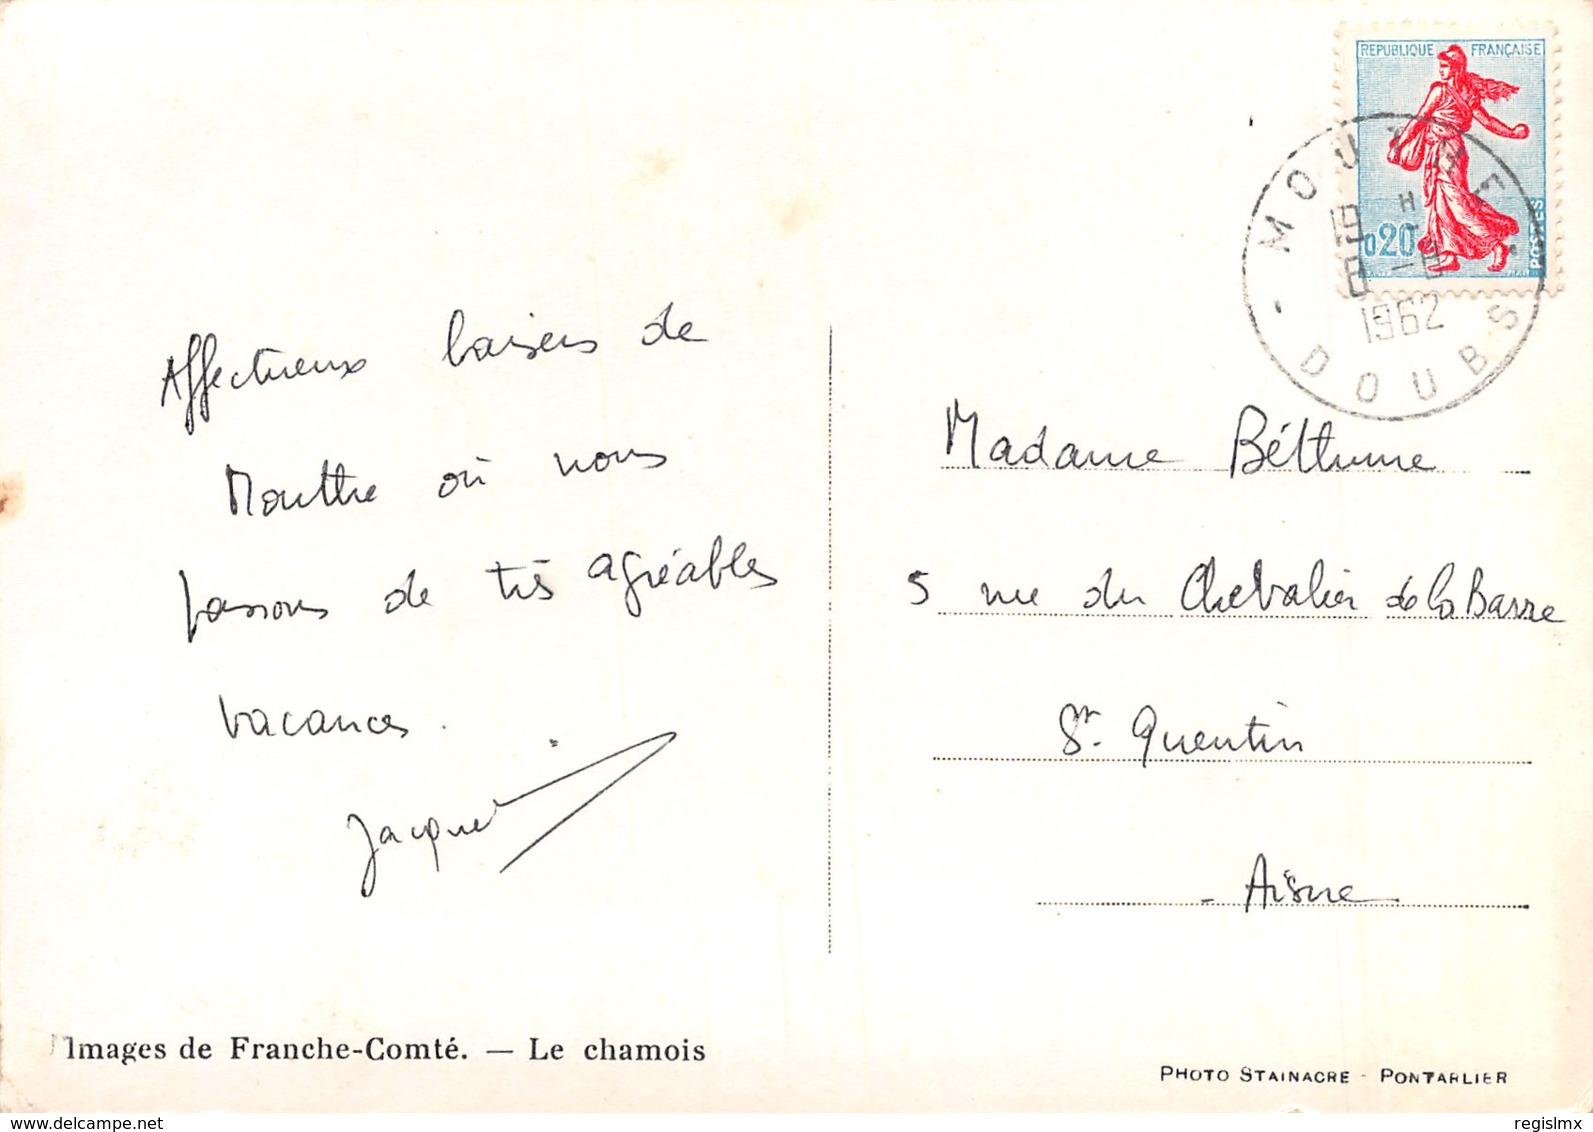 REPUBLIQUE FRANÇAISE
0,20
POSTES
MOUTHE
19 H
8 -8
1962
DOUBS
Affectueux baisers de
Mouthe où nous
passons de très agréables
vacances.
Jacques
Madame Béthune
5 rue du Chevalier de la Barre
St. Quentin
- Aisne
Images de Franche-Comté. — Le chamois
PHOTO STAINACRE - PONTARLIER
delcampe.net
regislmx